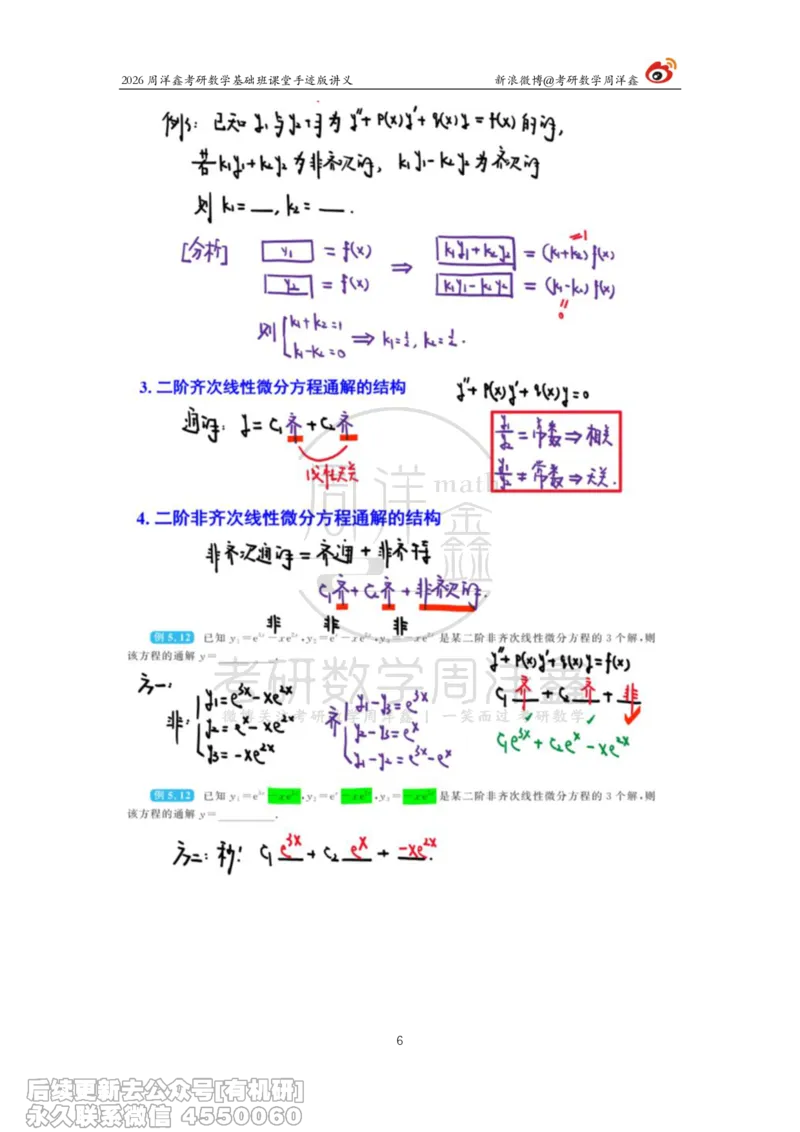 2026 周洋鑫考研数学基础班课堂手迹版讲义 新浪微博@考研数学周洋鑫
已知 y₁与y₂均为 y''+P(x)y'+q(x)y=f(x) 的解,
若k₁y₁+k₂y₂为非齐次解, k₁y₁-k₂y₂为齐次解
则 k₁=__, k₂=__.
[分析] y₁ = f(x) ⇒ k₁y₁+k₂y₂ = (k₁+k₂)f(x) =1
y₂ = f(x) k₁y₁-k₂y₂ = (k₁-k₂)f(x) = 0
则 { k₁+k₂=1
k₁-k₂=0 ⇒ k₁=½, k₂=½.
3. 二阶齐次线性微分方程通解的结构 y''+P(x)y'+q(x)y=0
通解: y=C₁齐+C₂齐
线性无关
y₁/y₂=常数⇒相关
y₁/y₂≠常数⇒无关.
4. 二阶非齐次线性微分方程通解的结构
非齐次通解=齐通+非齐特
C₁齐+C₂齐+非齐次解.
非 非 非
例 5.12 已知 y₁=e³ˣ-xe²ˣ,y₂=eˣ-xe²ˣ,y₃=-xe²ˣ 是某二阶非齐次线性微分方程的 3 个解,则
该方程的通解 y=________.
y''+P(x)y'+q(x)y=f(x)
方一:
C₁齐+C₂齐+非
非: { y₁=e³ˣ-xe²ˣ
y₂=eˣ-xe²ˣ
y₃=-xe²ˣ
齐 { y₁-y₃=e³ˣ
y₂-y₃=eˣ
y₁-y₂=e³ˣ-eˣ
C₁e³ˣ+C₂eˣ-xe²ˣ
例 5.12 已知 y₁=e³ˣ-xe²ˣ,y₂=eˣ-xe²ˣ,y₃=-xe²ˣ 是某二阶非齐次线性微分方程的 3 个解,则
该方程的通解 y=________.
方二: 秒! C₁e³ˣ+C₂eˣ+-xe²ˣ.
周洋鑫 math
考研数学周洋鑫
微博关注考研数学周洋鑫 | 一笑而过 考研数学
6
后续更新去公众号[有机研]
永久联系微信 4550060